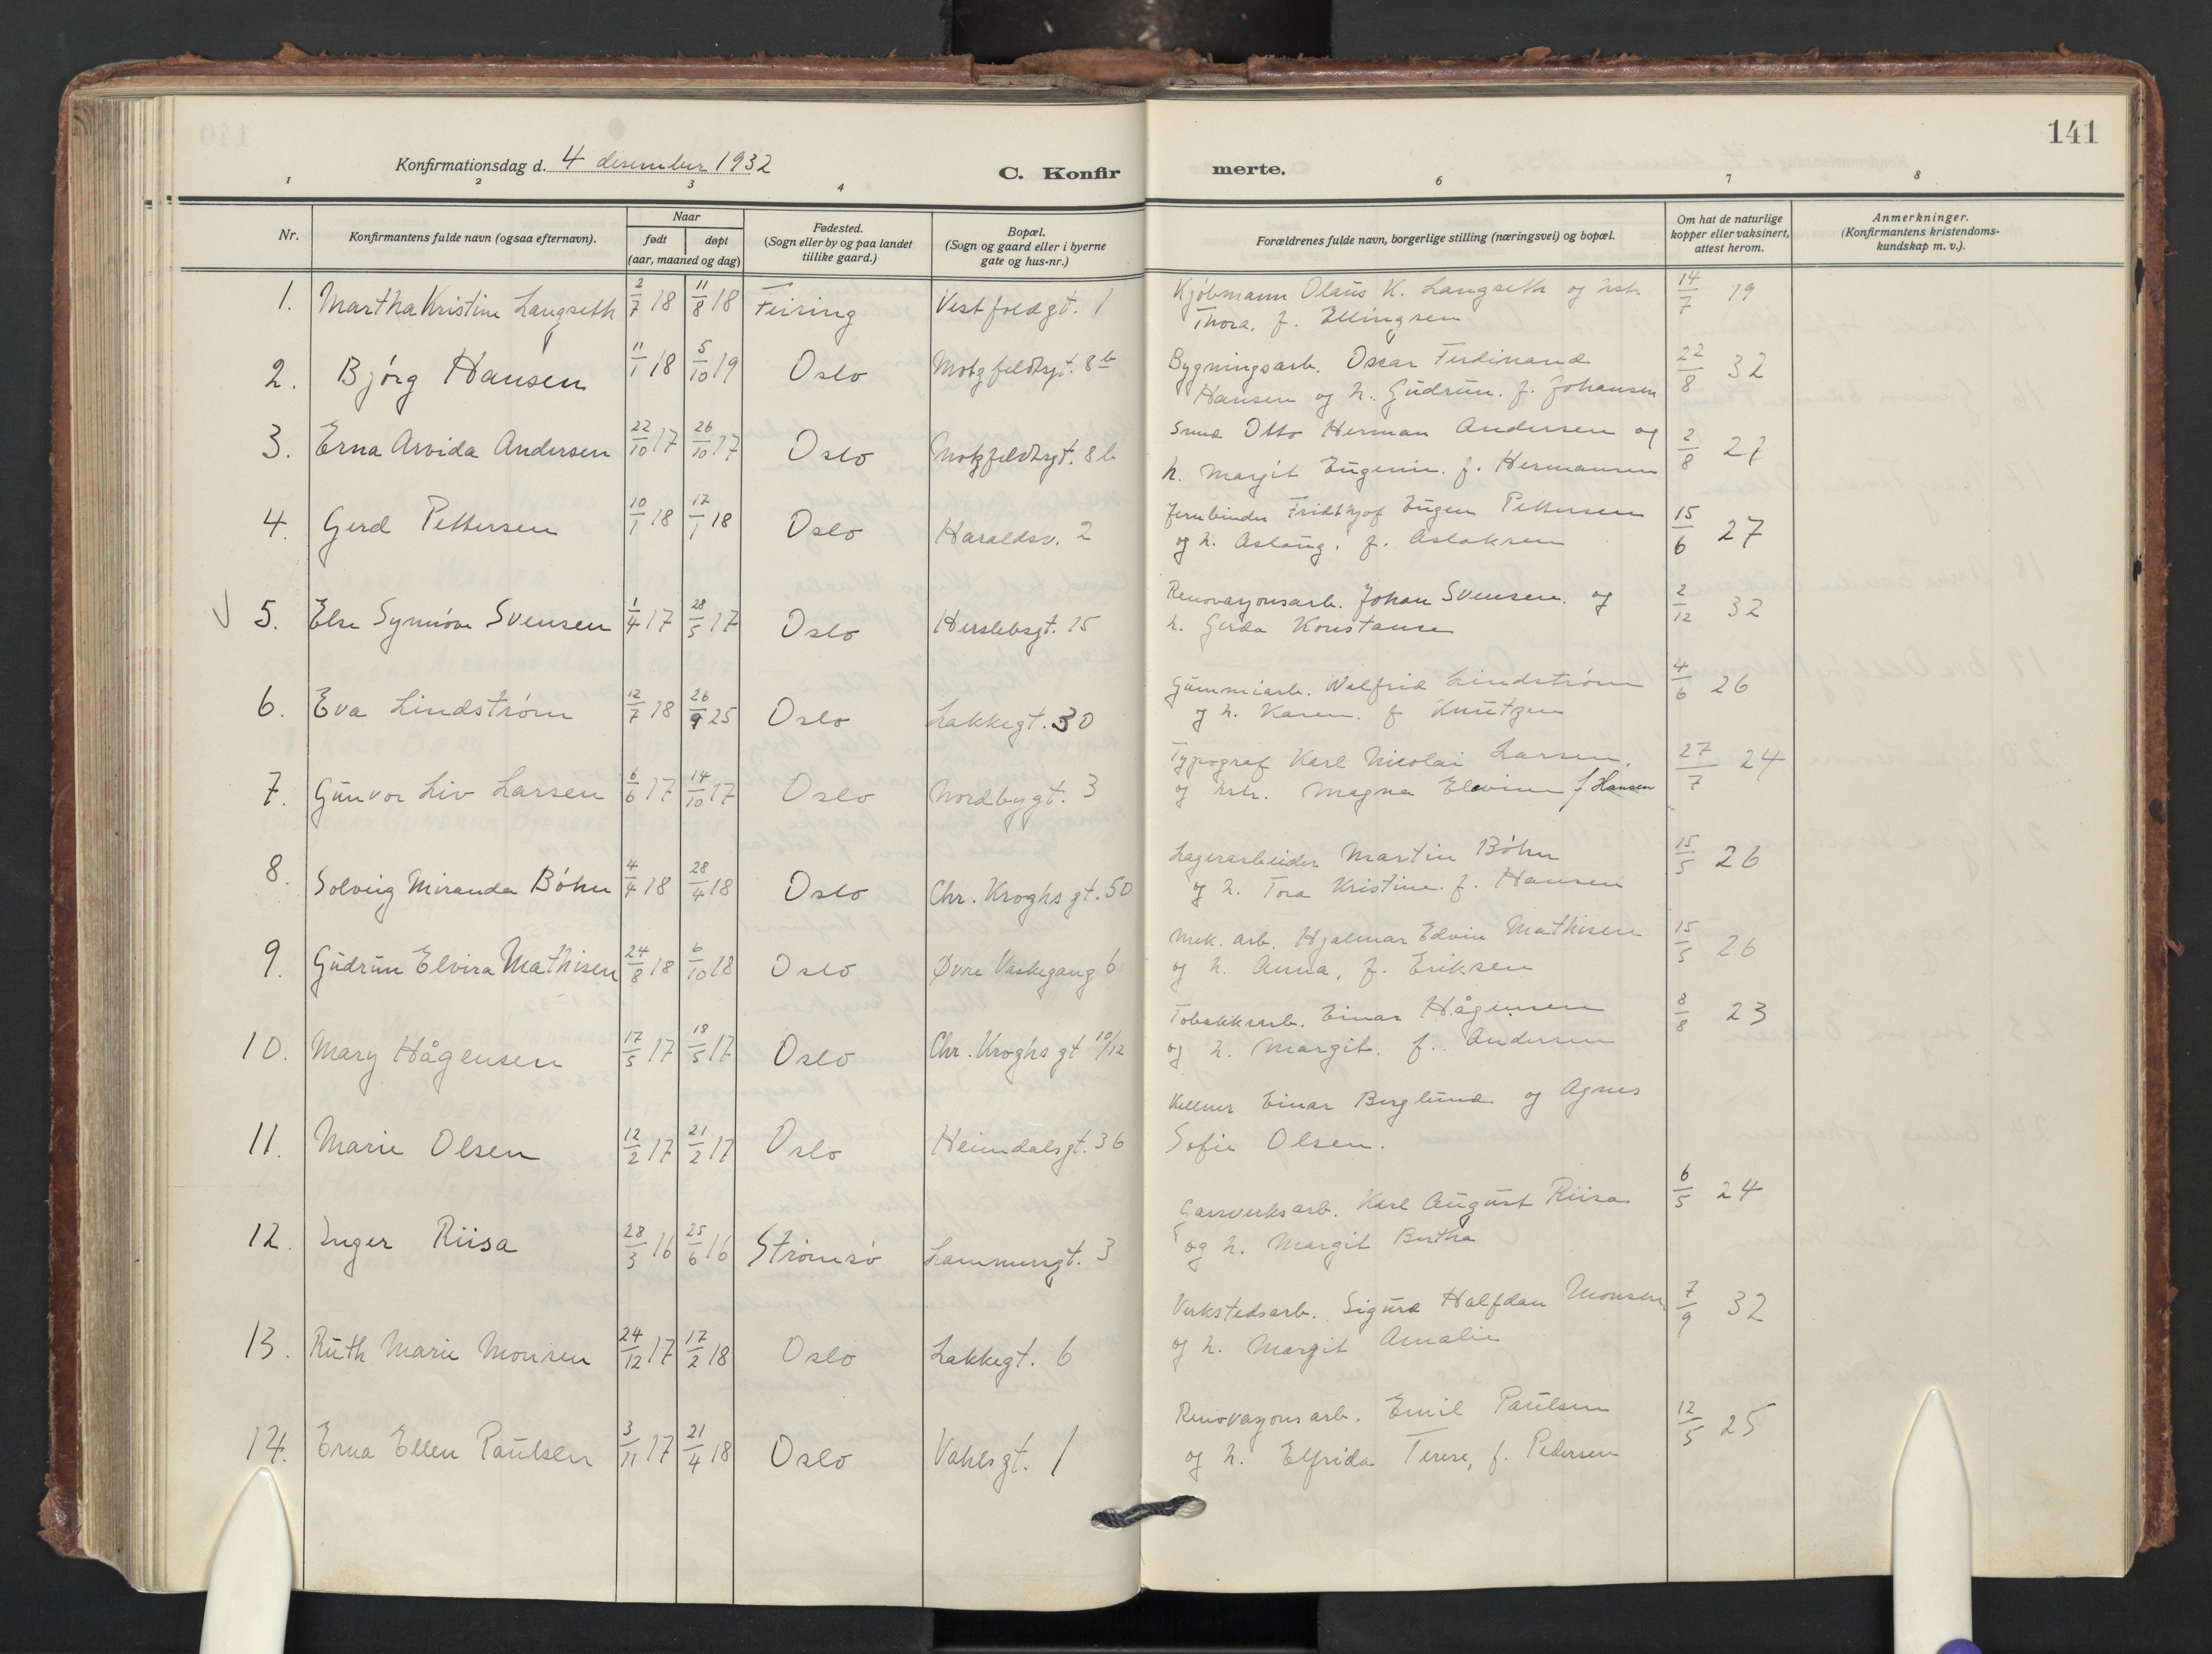 141
Konfirmationsdag d. 4 desember 1932
C. Konfirmerte.
1 2 3 4 6 7 8
Nr.
Konfirmantens fulde navn (ogsaa efternavn).
Naar
født døpt
(aar, maaned og dag)
Fødested.
(Sogn eller by og paa landet
tillike gaard.)
Bopæl.
(Sogn og gaard eller i byerne
gate og hus-nr.)
Forældrenes fulde navn, borgerlige stilling (næringsvei) og bopæl.
Om hat de naturlige
kopper eller vaksinert,
attest herom.
Anmerkninger.
(Konfirmantens kristendoms-
kundskap m. v.).
1. Martha Kristine Langseth 2/7 18 11/8 18 Feiring Vestfoldgt. 1 Kjøbmann Olaus K. Langseth og hstr. 14/7 19
Thora, f. Ellingsen
2. Bjørg Hansen 11/1 18 5/10 19 Oslo Motzfeldtsgt. 8b Bygningsarb. Oscar Ferdinand 22/8 32
Hansen og h. Gudrun. f. Johansen
3. Erna Arvida Andersen 22/10 17 26/10 17 Oslo Motzfeldtsgt. 8b Smed Otto Herman Andersen og 2/8 27
h. Margit Eugenie. f. Hermansen
4. Gerd Pettersen 10/1 18 17/1 18 Oslo Haraldsv. 2 Jernbinder Fridthjof Eugen Pettersen 15/6 27
og h. Aslaug. f. Aslaksen
5. Else Synnøve Svensen 1/4 17 28/5 17 Oslo Herslebsgt. 15 Renovasjonsarb. Johan Svensen og 2/12 32
h. Gerda Konstanse
6. Eva Lindstrøm 12/7 18 26/9 25 Oslo Lakkegt. 30 Gummiarb. Walfrid Lindstrøm 4/6 26
og h. Karen. f Knutzen
7. Gunvor Liv Larsen 6/6 17 14/10 17 Oslo Nordbygt. 3 Typograf Karl Nicolai Larsen, 27/7 24
og hstr. Magna Elvine f. Hansen
8. Solveig Miranda Bøhn 4/4 18 28/4 18 Oslo Chr. Kroghs gt. 50 Lagerarbeider Martin Bøhn 15/5 26
og h. Tora Kristine. f. Hansen
9. Gudrun Elvira Mathisen 24/8 18 6/10 18 Oslo Øvre Vaskegang 6 Mek. arb. Hjalmar Edvin Mathisen 15/5 26
og h. Anna, f. Eriksen
10. Mary Hågensen 17/5 17 18/5 17 Oslo Chr. Kroghs gt 10/12 Tobakksarb. Einar Hågensen 8/8 23
og h. Margit. f. Andersen
11. Marie Olsen 12/2 17 21/2 17 Oslo Heimdalsgt. 36 Kellner Einar Berglund og Agnes
Sofie Olsen.
12. Inger Riisa 28/3 16 25/6 16 Strømsø Lammersgt. 3 Gassverksarb. Karl August Riisa 6/5 24
og h. Margit Bertha
13. Ruth Marie Monsen 24/12 17 17/2 18 Oslo Lakkegt. 6 Verkstedsarb. Sigurd Halfdan Monsen 7/9 32
og h. Margit Amalie
14. Erna Ellen Paulsen 3/11 17 21/4 18 Oslo Vahlsgt. 1 Renovasjonsarb. Emil Paulsen 12/5 25
og h. Elfrida Terese, f. Pedersen